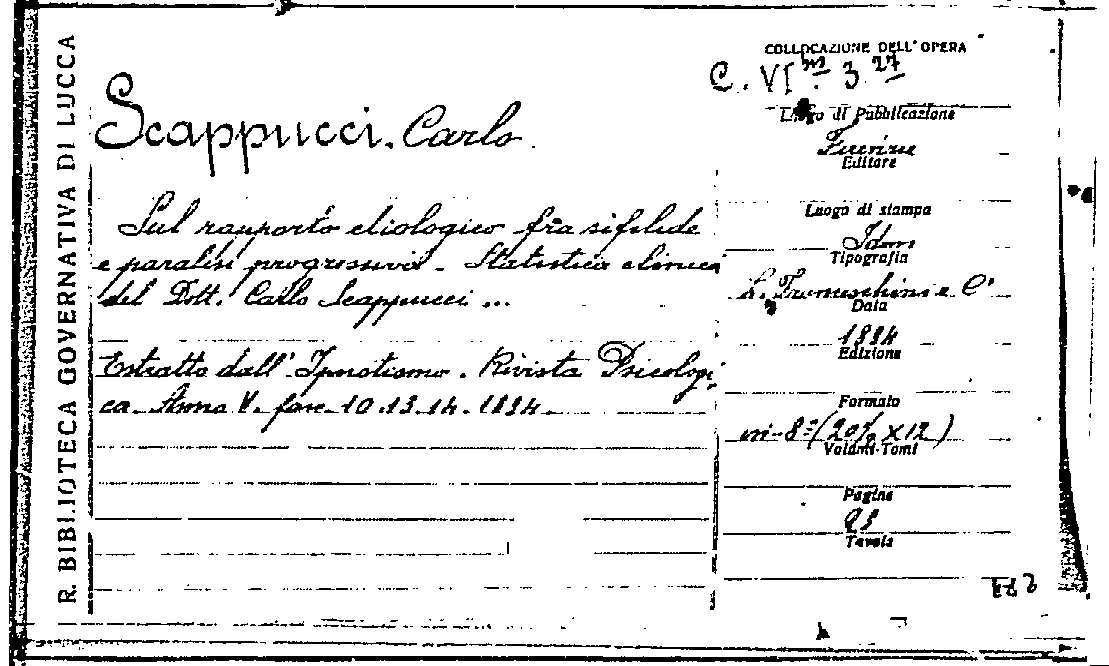 R. BIBLIOTECA GOVERNATIVA DI LUCCA
Scappucci. Carlo
Sul rapporto etiologico fra sifilide
e paralisi progressiva - Statistica clinica
del Dott. Carlo Scappucci ...
Estratto dall' Ipnotismo. Rivista Psicologi
ca. Anno V. fasc. 10.13.14. 1894.
COLLOCAZIONE DELL'OPERA
C. VI 3 27
Luogo di Pubblicazione
Firenze
Editore
Luogo di stampa
Idem
Tipografia
L. Franceschini e C'
Data
1894
Edizione
Formato
in-8º (20½ x 12)
Volumi-Tomi
Pagine
Tavole